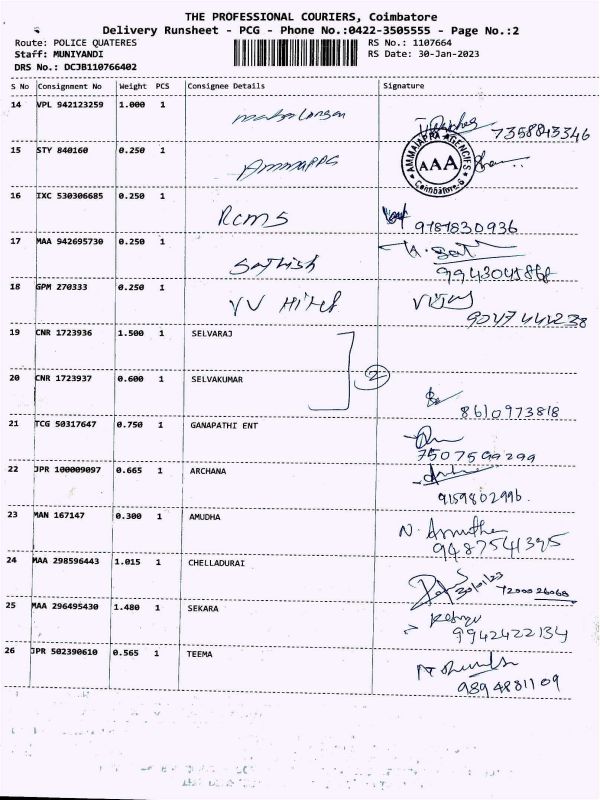 THE PROFESSIONAL COURIERS, Coimbatore
Delivery Runsheet - PCG - Phone No.:0422-3505555 - Page No.:2
Route: POLICE QUATERES RS No.: 1107664
Staff: MUNIYANDI RS Date: 30-Jan-2023
DRS No.: DCJB110766402
S No Consignment No Weight PCS Consignee Details Signature
14 VPL 942123259 1.000 1 7358843346
15 STY 840160 0.250 1 AMMAIAPPA AGENCIES AAA Coimbatore-6
16 IXC 530306685 0.250 1 RCMS 9181830936
17 MAA 942695730 0.250 1 Sathish
18 GPM 270333 0.250 1 VV Vijay
19 CNR 1723936 1.500 1 SELVARAJ
20 CNR 1723937 0.600 1 SELVAKUMAR 2 8610973818
21 TCG 50317647 0.750 1 GANAPATHI ENT 7507599299
22 JPR 100009097 0.665 1 ARCHANA 9159802996
23 MAN 167147 0.300 1 AMUDHA N. Amudha 9487541395
24 MAA 298596443 1.015 1 CHELLADURAI 7200026068
25 MAA 296495430 1.480 1 SEKARA 9942422134
26 JPR 502390610 0.565 1 TEEMA 9894881109